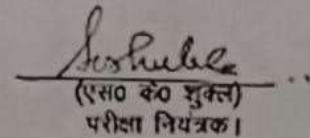 (एस० के० शुक्ल)
परीक्षा नियंत्रक।